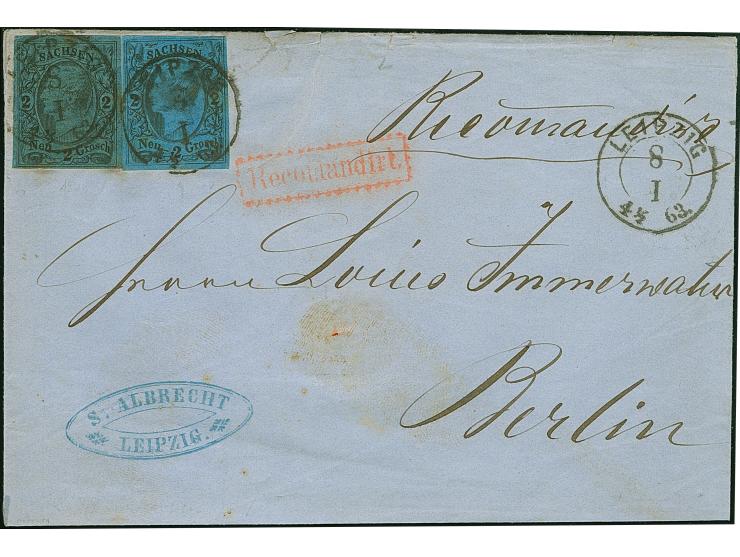 SACHSEN
2 2
Neu 2 Grosch
SACHSEN
2 2
Neu 2 Grosch
Recomandirt
LEIPZIG
8
I
4½ 63.
Recomandirt.
Herrn Louis Immerwahr
Berlin
S. ALBRECHT
LEIPZIG.